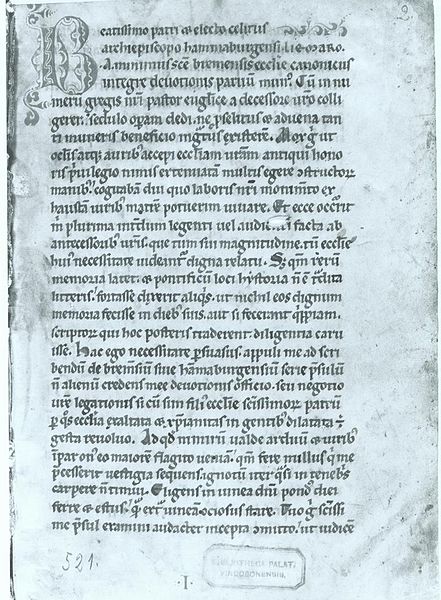 Beatissimo patri et electo celitus
archiepiscopo hammaburgensi liemaro.
A. minimus scē bremensis ecclie canonicus
integre deuotionis paruū mun9. Cū in nu
merū gregis nr̄i pastor euglice a decessore uro colli
gerer. sedulo operam dedi. ne pselitus et aduena tan
ti muneris beneficio ingratus existerē. Mox g ut
oclis atq; auribus accepi eccliam urām antiqui hono
ris puilegio nimis extenuatam multis egere ↄstructorū
manibus cogitabā diu quo laboris nr̄i monimto ex
haustā uiribus matrē potuerim iuuare. Et ecce occr̄it
in plurima intdum legenti uel audienti facta ab
antecessorib urīs. que tum sui magnitudine. tū ecclie
hui9 necessitate uideant digna relatu. S; qm̄ rerū
memoria latet. et pontificū loci hystoria n ē tdita
litteris. fortasse dixerit aliqs. ut nichil eos dignum
memoria fecisse in dieb suis. aut si fecerant qppiam.
scriptorū qui hoc posteris traderent. diligentia caru
isse. Hac ego necessitate psuasus. appuli me ad scri
bendū de bremensiū siue hammaburgensiū serie psulū
n alienū credens mee deuotionis officio. seu negotio
ure legationis. si cū sim fili9 ecclie scīssimorū patrū
p qs ecclia exaltata et xpianitas in gentib dilatata ē
gesta reuoluo. Ad qd nimirū ualde arduū et uirib
impar on9 eo maiorē flagito ueniā. qm̄ fere nullus q me
pcesserit uestigia sequens. ignotū iter qsi in tenebris
carpere n timui. Eligens in uinea dni pond9 diei
ferre et estus. q extra uineā ociosus stare. Tuo g scīssi
me psul examini audacter incepta ↄmitto. ut iudicē
521.
BIBLIOTHECA PALAT.
VINDOBONENSIS.
·I·